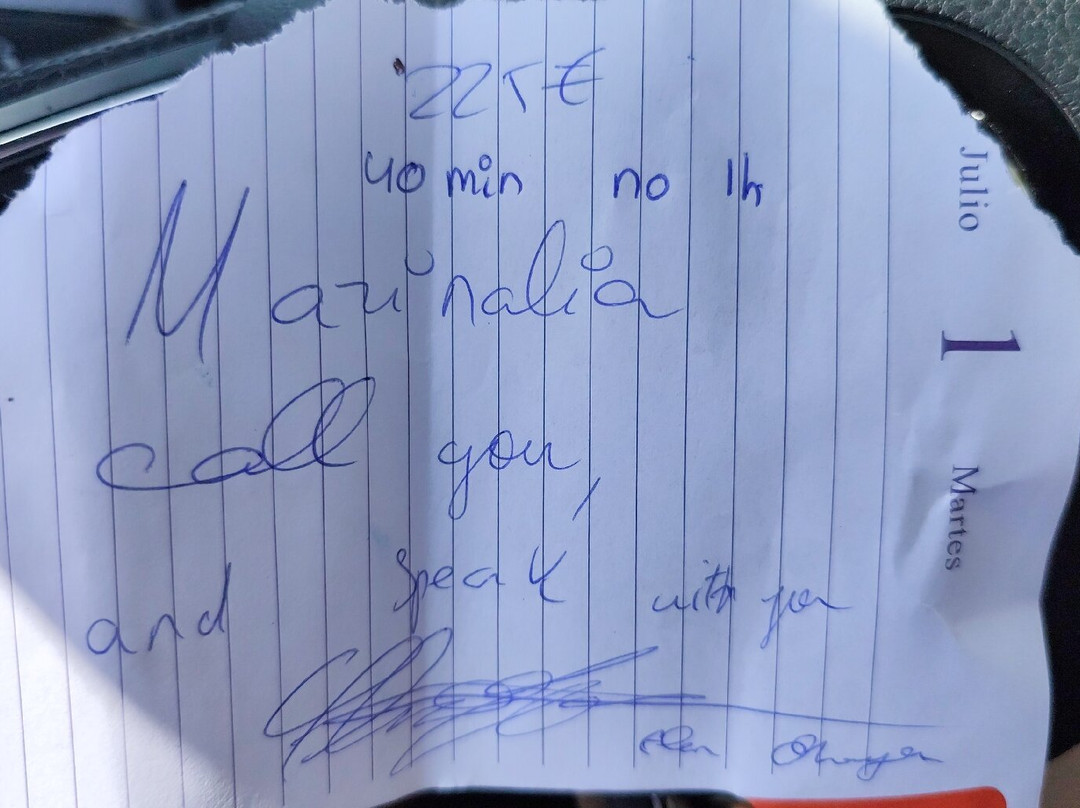 225€
40 min no 1h
Marinalia
call you,
and speak with you
Julio
1
Martes